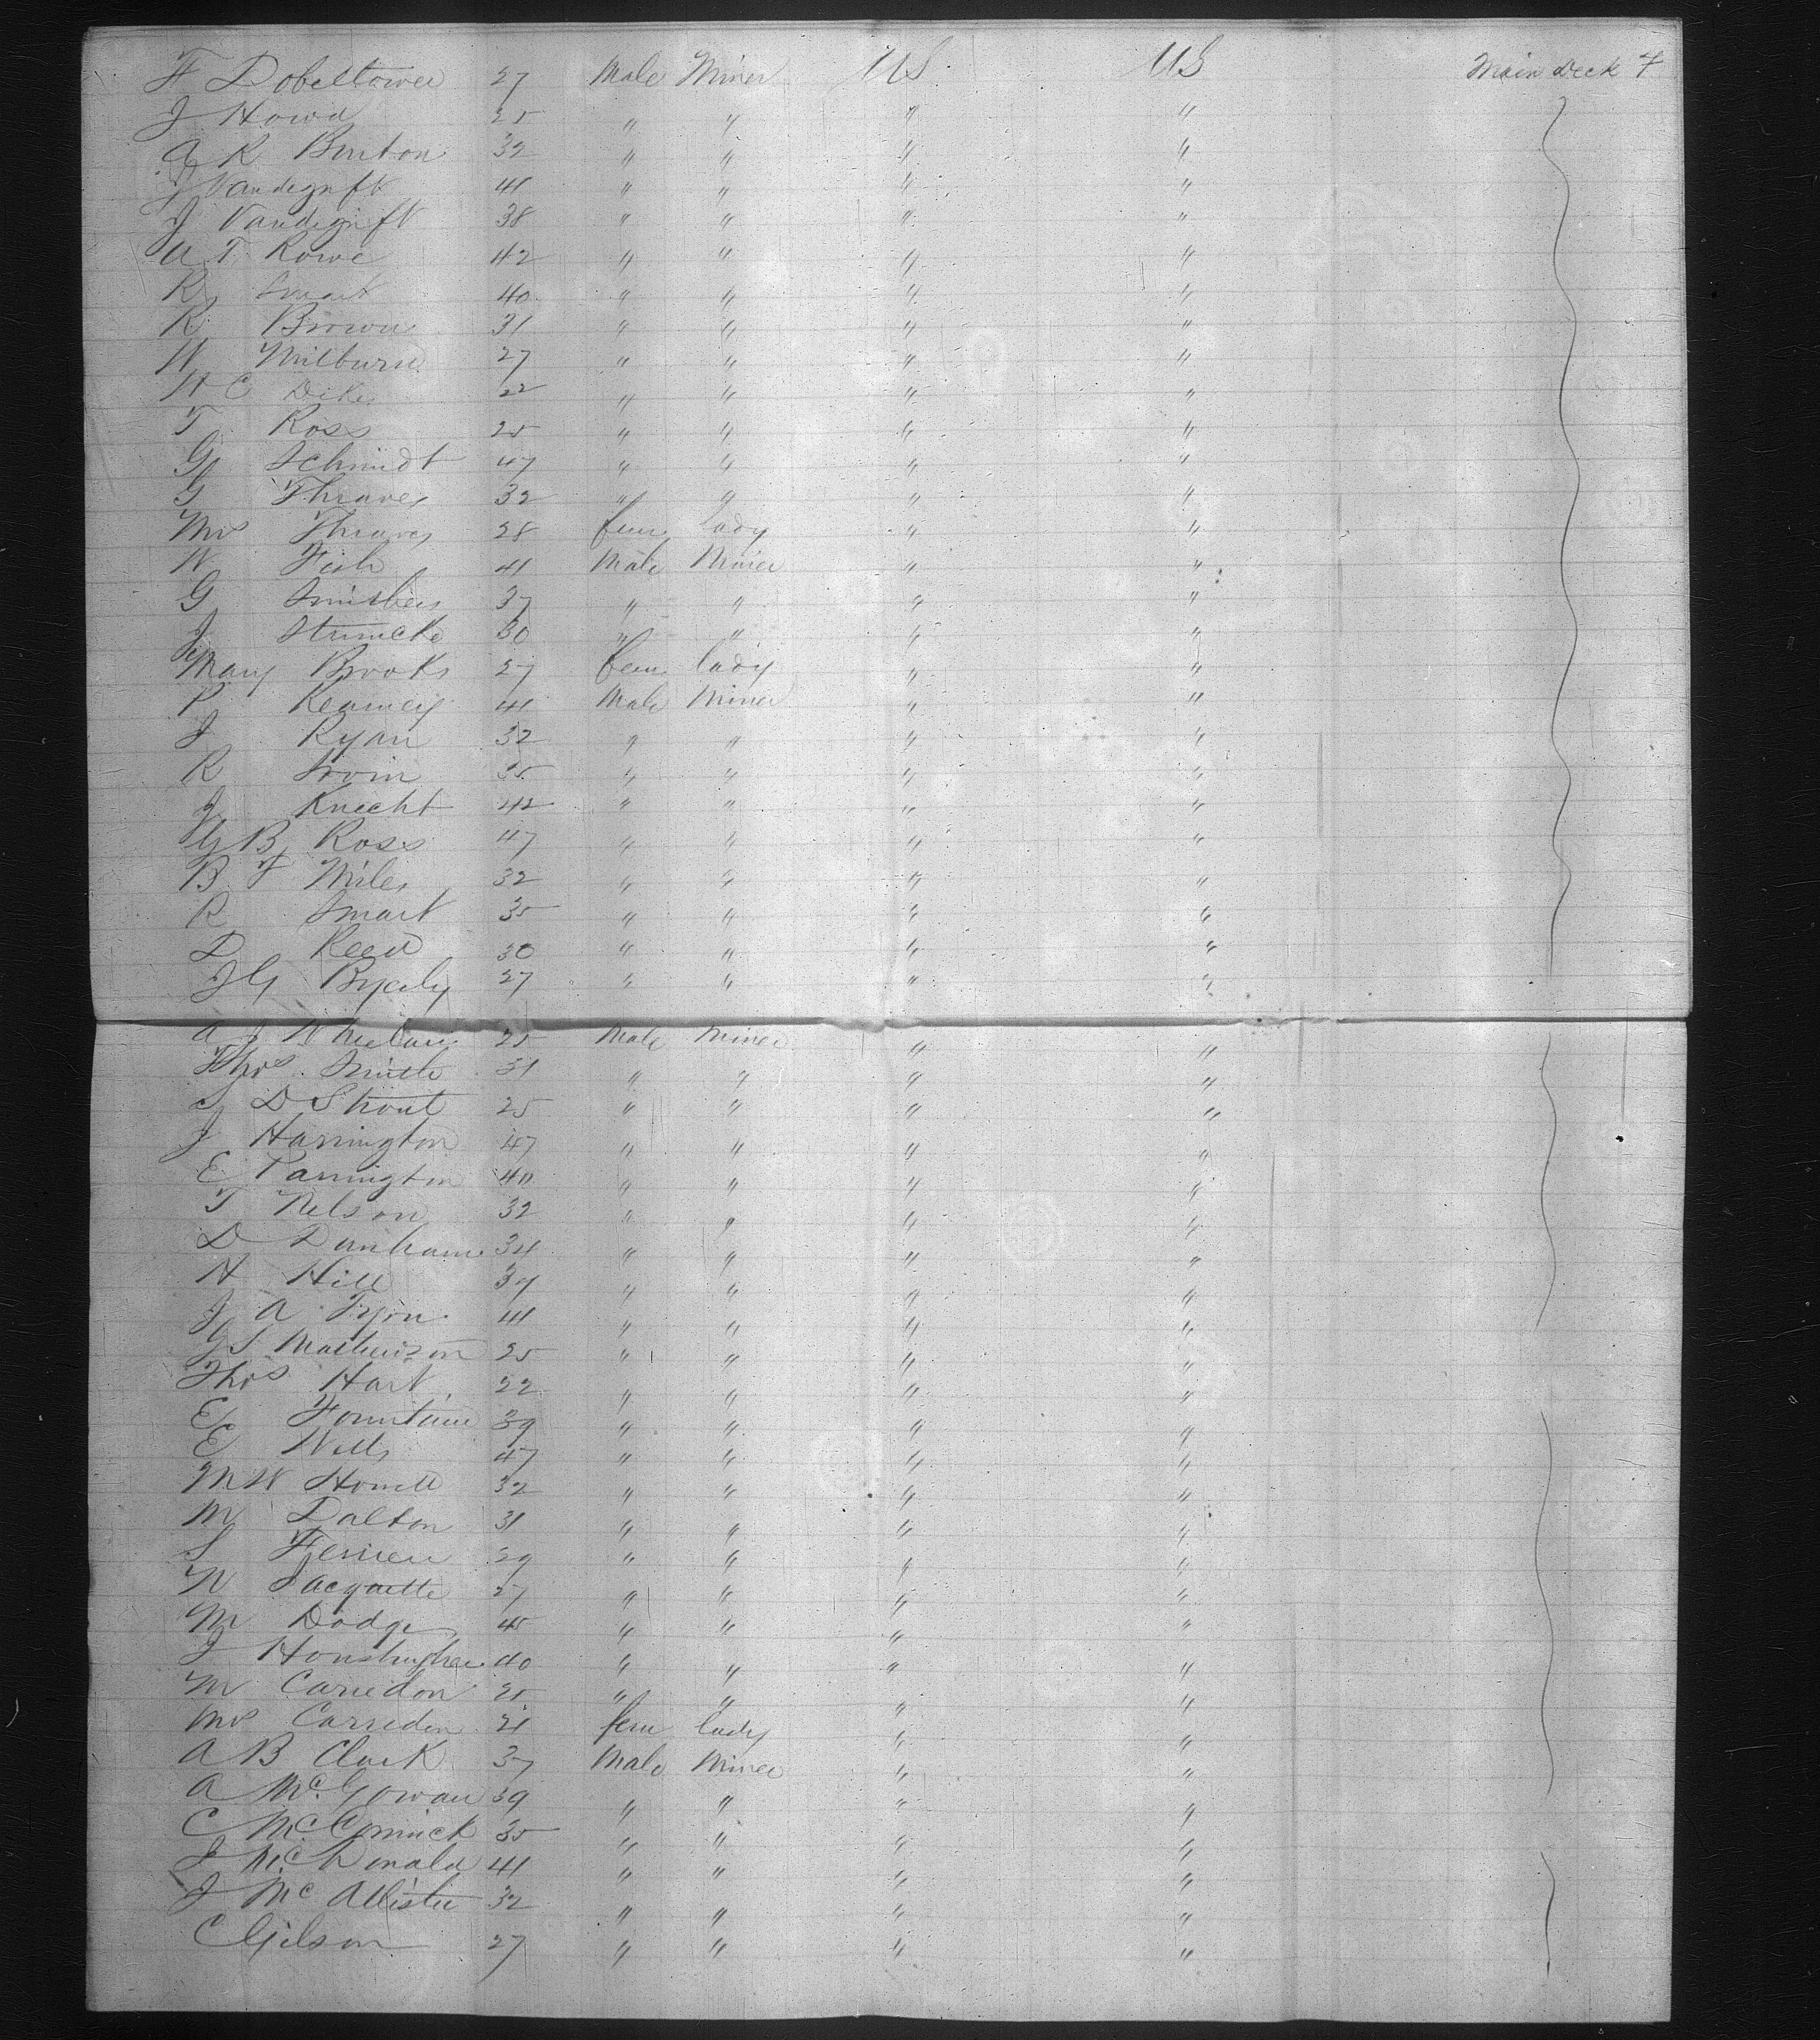 F Dobeltower 27 Male Miner US US Main Deck F
J Howd 25 " " " "
A R Burton 32 " " " "
J Vandegrift 41 " " " "
J Vandegrift 38 " " " "
A T Rowe 42 " " " "
R Smart 40 " " " "
R Brown 31 " " " "
W Milburn 27 " " " "
W C Dike 22 " " " "
T Ross 25 " " " "
G Schmidt 47 " " " "
G Thraves 32 " " " "
Mrs Thraves 28 fem lady " "
W Fish 41 Male Miner " "
G 37 " " " "
J Strucke 30 " " " "
Mary Brooks 27 fem lady " "
P Kearney 41 Male Miner " "
J Ryan 32 " " " "
R Irvin 35 " " " "
J Knecht 42 " " " "
G B Ross 47 " " " "
B F Miles 32 " " " "
R Smart 35 " " " "
D Reed 30 " " " "
J G Byerly 27 " " " "
A J Whelan 25 Male Miner " "
Thos Smith 31 " " " "
S D Strout 25 " " " "
J Harrington 47 " " " "
E Parrington 40 " " " "
T Nelson 32 " " " "
D Danham 34 " " " "
H Hill 37 " " " "
J A Tryon 41 " " " "
G S Mathewson 25 " " " "
Thos Hart 22 " " " "
E Fountain 39 " " " "
E Wells 47 " " " "
M W Howell 32 " " " "
M Dalton 31 " " " "
S 29 " " " "
W Jacquette 27 " " " "
M Dodge 45 " " " "
J 40 " " " "
M Carredon 25 " " " "
Mrs Carredon 21 fem lady " "
A B Clark 37 Male Miner " "
A McGowan 39 " " " "
C McCormick 35 " " " "
J McDonald 41 " " " "
J McAllister 32 " " " "
C Gilson 27 " " " "